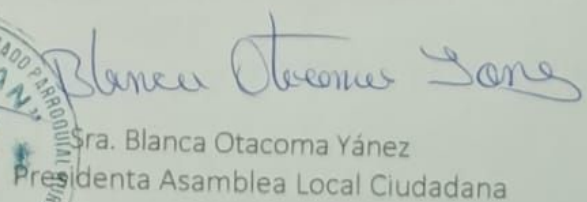 Blanca Otacoma Yanez
Sra. Blanca Otacoma Yánez
Presidenta Asamblea Local Ciudadana
PARROQUIAL